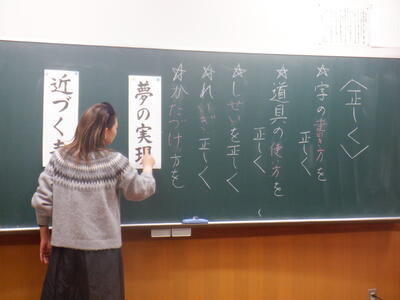 〈正しく〉
☆字の書き方を
正しく
☆道具の使方を
正しく
☆しせいを正しく
☆れいぎ正しく
☆かたづけ方を
夢の実現
近づく